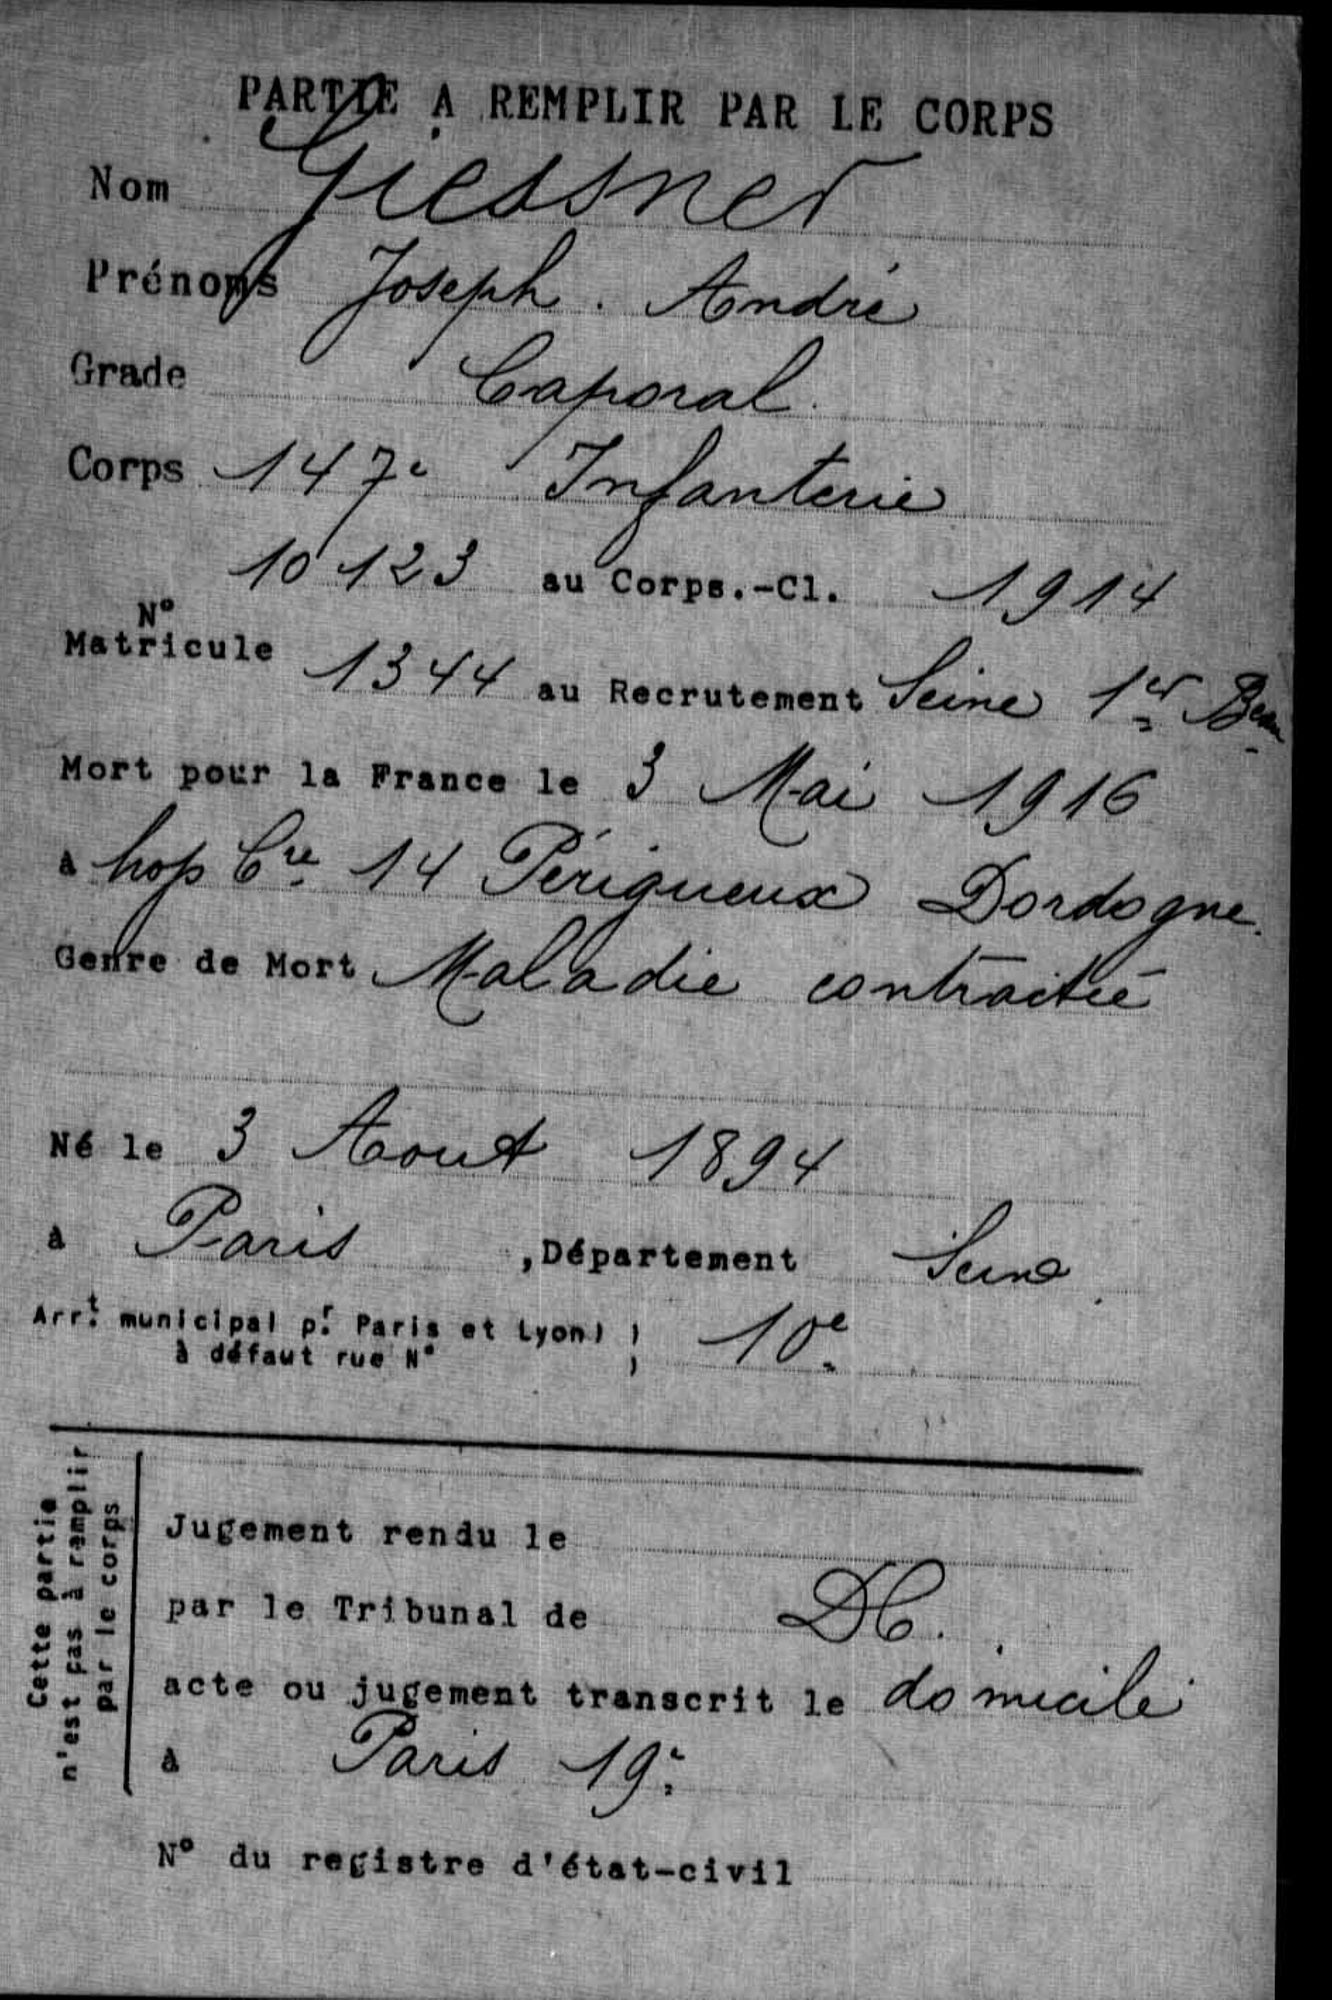 PARTIE A REMPLIR PAR LE CORPS
Nom Giessner
Prénoms Joseph. André
Grade Caporal.
Corps 147e Infanterie
10123 au Corps.-Cl. 1914
N°
Matricule
1344 au Recrutement Seine 1er Beau
Mort pour la France le 3 Mai 1916
à hop Cre 14 Périgueux Dordogne.
Genre de Mort Maladie contractée
Né le 3 Aout 1894
à Paris, Département Seine
Arrt. municipal pr. Paris et Lyon)
à défaut rue N°
10e
Cette partie
n'est pas à remplir
par le corps
Jugement rendu le
par le Tribunal de DC.
acte ou jugement transcrit le domicile
à Paris 19e
N° du registre d'état-civil